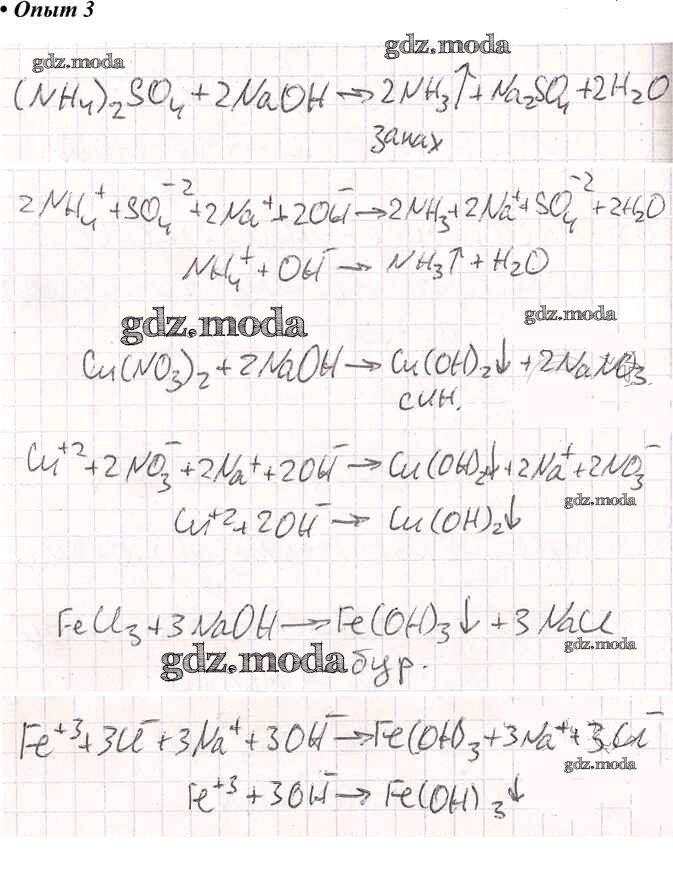 • Опыт 3
gdz.moda
gdz.moda
(NH₄)₂SO₄ + 2NaOH → 2NH₃↑ + Na₂SO₄ + 2H₂O
запах
2NH₄⁺ + SO₄⁻² + 2Na⁺ + 2OH⁻ → 2NH₃ + 2Na⁺ + SO₄⁻² + 2H₂O
NH₄⁺ + OH⁻ → NH₃↑ + H₂O
gdz.moda
gdz.moda
Cu(NO₃)₂ + 2NaOH → Cu(OH)₂↓ + 2NaNO₃
син.
Cu⁺² + 2NO₃⁻ + 2Na⁺ + 2OH⁻ → Cu(OH)₂↓ + 2Na⁺ + 2NO₃⁻
gdz.moda
Cu⁺² + 2OH⁻ → Cu(OH)₂↓
FeCl₃ + 3NaOH → Fe(OH)₃↓ + 3NaCl
gdz.moda
gdz.moda
бур.
Fe⁺³ + 3Cl⁻ + 3Na⁺ + 3OH⁻ → Fe(OH)₃ + 3Na⁺ + 3Cl⁻
gdz.moda
Fe⁺³ + 3OH⁻ → Fe(OH)₃↓